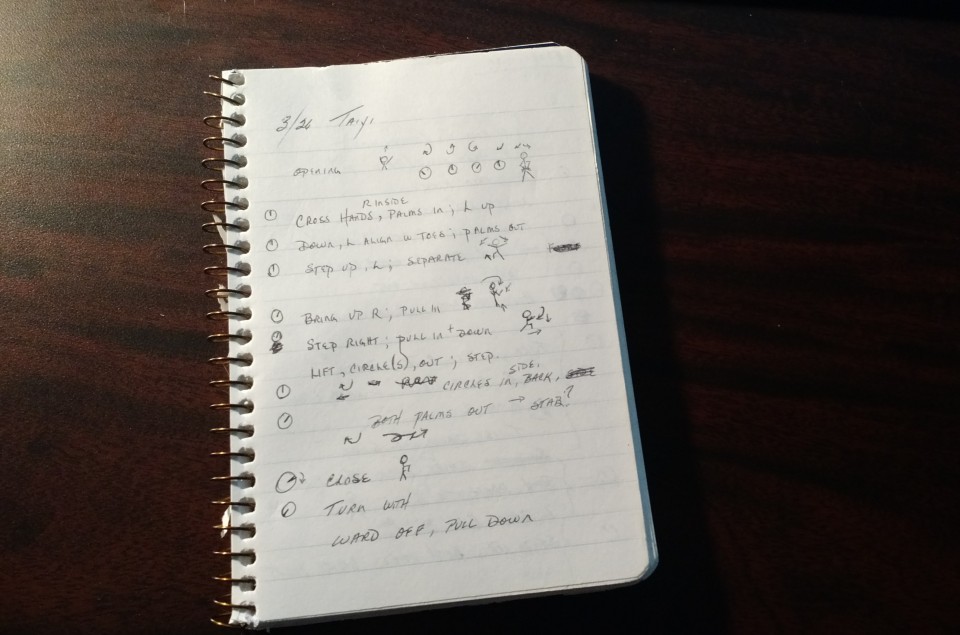 3/26 TAIYI
OPENING
R INSIDE
CROSS HANDS, PALMS IN; L UP
DOWN, L ALIGN W TOES; PALMS OUT
STEP UP, L; SEPARATE
BRING UP R; PULL IN
STEP RIGHT; PULL IN + DOWN
LIFT, CIRCLE(S), OUT; STEP.
SIDE,
CIRCLES IN, BACK,
BOTH PALMS OUT → STAB?
CLOSE
TURN WITH
WARD OFF, PULL DOWN